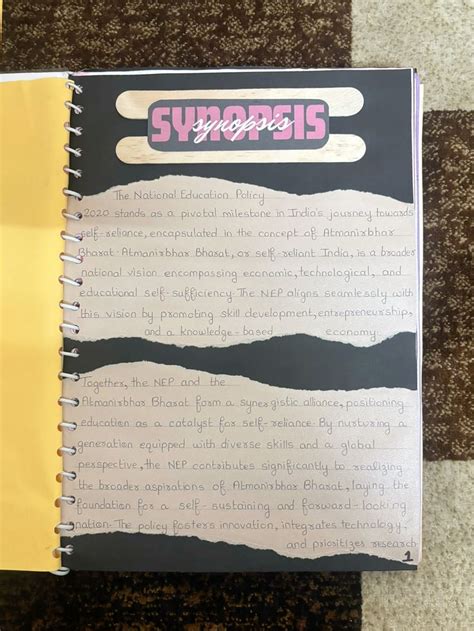 SYNOPSIS
synopsis
The National Education Policy
2020 stands as a pivotal milestone in India's journey towards
self-reliance, encapsulated in the concept of Atmanirbhar
Bharat. Atmanirbhar Bharat, or self-reliant India, is a broader
national vision encompassing economic, technological, and
educational self-sufficiency. The NEP aligns seamlessly with
this vision by promoting skill development, entrepreneurship,
and a knowledge-based economy.
Together, the NEP and the
Atmanirbhar Bharat form a synergistic alliance, positioning
education as a catalyst for self-reliance. By nurturing a
generation equipped with diverse skills and a global
perspective, the NEP contributes significantly to realizing
the broader aspirations of Atmanirbhar Bharat, laying the
foundation for a self-sustaining and forward-looking
nation. The policy fosters innovation, integrates technology,
and prioritizes research
1